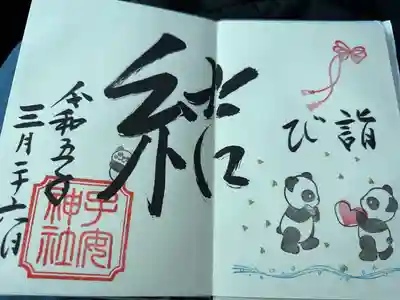 結び詣
令和五年
三月二十六日
子安
神社